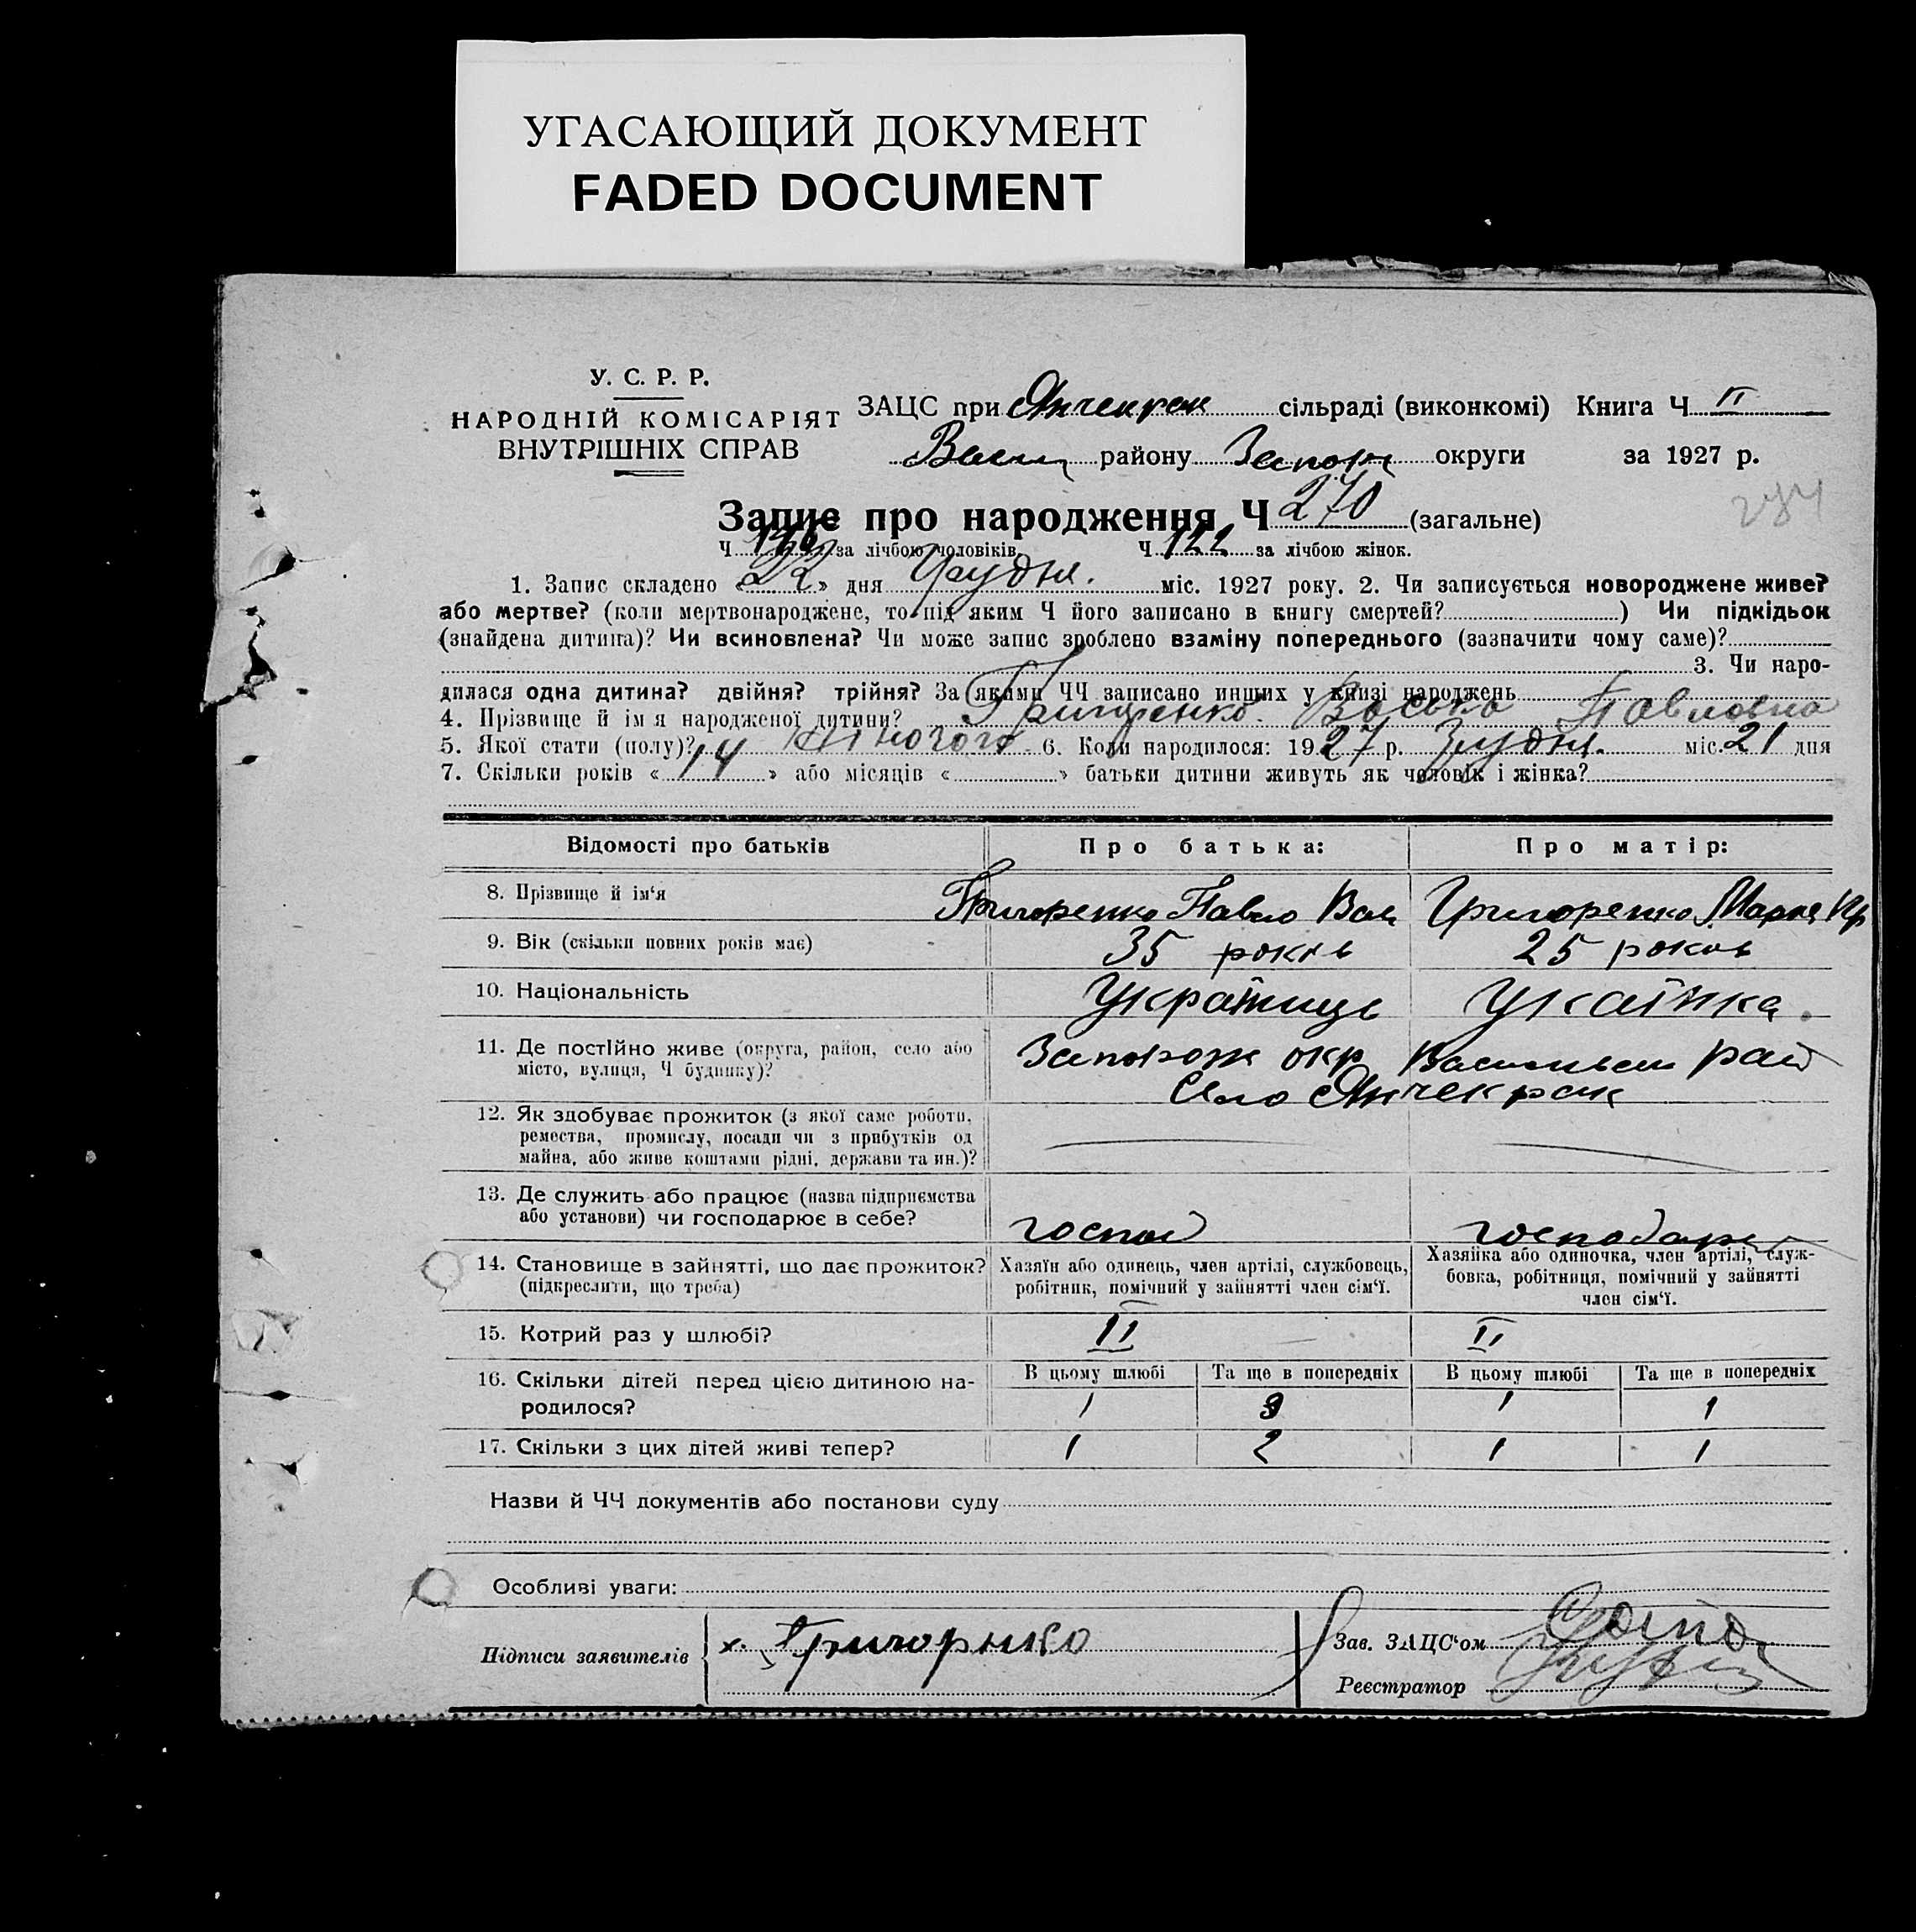 УГАСАЮЩИЙ ДОКУМЕНТ
FADED DOCUMENT
У. С. Р. Р.
НАРОДНІЙ КОМІСАРІЯТ
ВНУТРІШНІХ СПРАВ
ЗАЦС при Янчекрак сільраді (виконкомі) Книга Ч II
Васил району Запорж округи за 1927 р.
Запис про народження Ч 270 (загальне)
284
Ч за лічбою чоловіків. Ч 122 за лічбою жінок.
1. Запис складено «22» дня Грудня. міс. 1927 року. 2. Чи записується новороджене живе?
або мертве? (коли мертвонароджене, то під яким Ч його записано в книгу смертей? ) Чи підкідьок
(знайдена дитина)? Чи всиновлена? Чи може запис зроблено взаміну попереднього (зазначити чому саме)?
3. Чи наро-
дилася одна дитина? двійня? трійня? За якими ЧЧ записано инших у книзі народжень
4. Прізвище й ім я народженої дитини? Павловна
5. Якої стати (полу)? жіночого 6. Коли народилося: 1927 р. Грудня. міс. 21 дня
7. Скільки років «14» або місяців « » батьки дитини живуть як чоловік і жінка?
Відомості про батьків Про батька: Про матір:
8. Прізвище й ім‘я Григоренко Павло Вас Григоренко Мария
9. Вік (скільки повних років має) 35 років 25 років
10. Національність Українець Укаїнка.
11. Де постійно живе (округа, район, село або Запорож окр Васильев рай
місто, вулиця, Ч будинку)? Село Янчекрак
12. Як здобуває прожиток (з якої саме роботи,
ремества, промислу, посади чи з прибутків од
майна, або живе коштами рідні, держави та ин.)?
13. Де служить або працює (назва підприємства
або установи) чи господарює в себе? господ господарю
14. Становище в зайнятті, що дає прожиток? Хазяїн або одинець, член артілі, службовець, Хазяйка або одиночка, член артілі, служ-
(підкреслити, що треба) робітник, помічний у зайнятті член сім‘ї. бовка, робітниця, помічний у зайнятті
член сім‘ї.
15. Котрий раз у шлюбі? II II
16. Скільки дітей перед цією дитиною на- В цьому шлюбі Та ще в попередніх В цьому шлюбі Та ще в попередніх
родилося? 1 3 1 1
17. Скільки з цих дітей живі тепер? 1 2 1 1
Назви й ЧЧ документів або постанови суду
Особливі уваги:
Підписи заявителів х. Григорнко Зав. ЗАЦС‘ом
Реєстратор